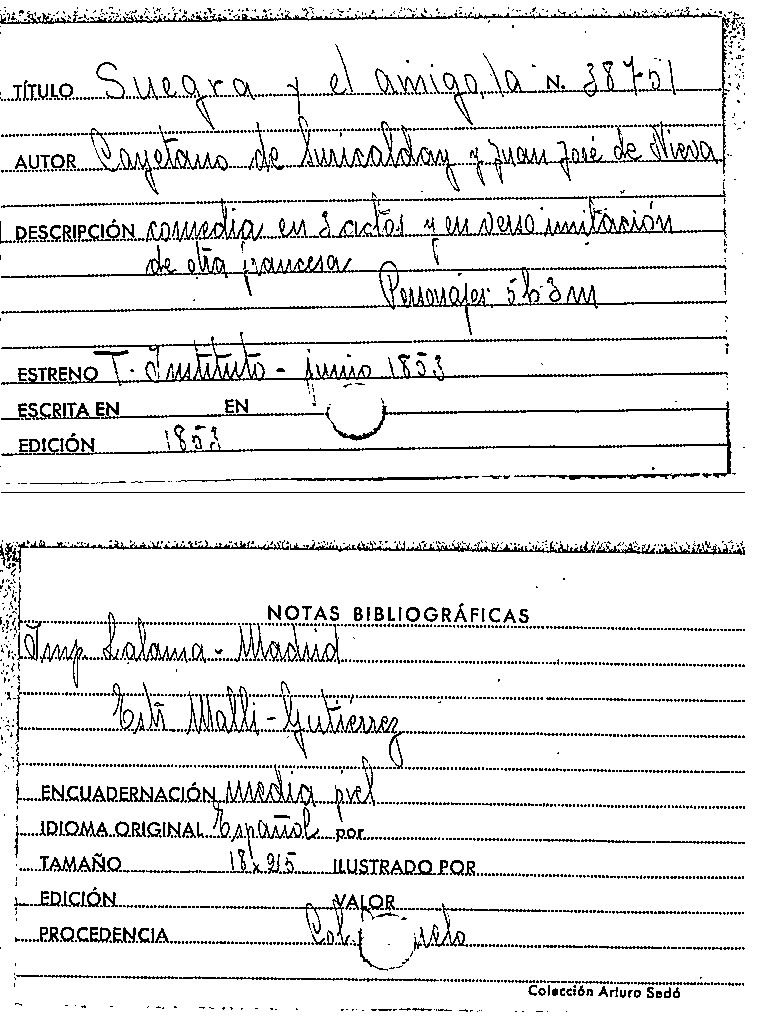 TÍTULO Suegra y el amigo, la N. 38751
AUTOR Cayetano de Suricalday y Juan José de Nieva
DESCRIPCIÓN comedia en 3 actos y en verso imitación
de otra francesa
Personajes 5h 3m
ESTRENO T. Instituto - junio 1853
ESCRITA EN EN
EDICIÓN 1853
NOTAS BIBLIOGRÁFICAS
Imp. Lalama - Madrid
Malli - Gutiérrez
ENCUADERNACIÓN media piel
IDIOMA ORIGINAL Español por
TAMAÑO ILUSTRADO POR
EDICIÓN VALOR
PROCEDENCIA
Colección Arturo Sedó